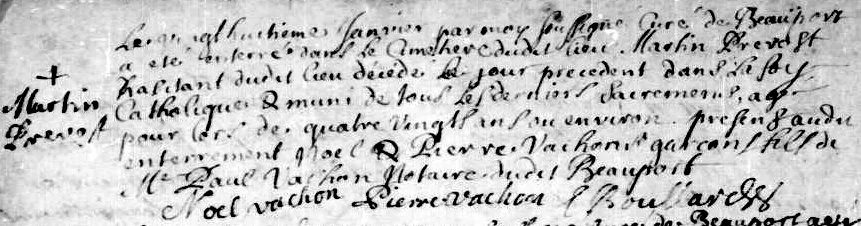 Le vingt huitieme Janvier par moy soussigné Curé de Beauport
a eté enterré dans le Cimetiere dudit lieu Martin Prevost
habitant dudit lieu décédé le jour precedent dans la foy
Catholique & muni de tous les derniers sacremens, agé
pour lors de quatre vingt ans ou environ. presens audit
enterrement Noel & Pierre Vachons garçons fils de
Mr Paul Vachon Notaire dudit Beauport
Noel vachon Pierre vachon E Boullard
+
Martin
Prevost
de Beauport